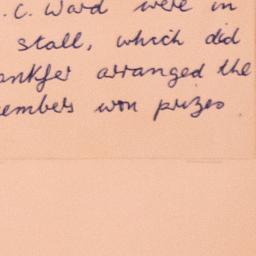 .C. Ward were in
stall, which did
ankfer arranged the
embers won prizes.